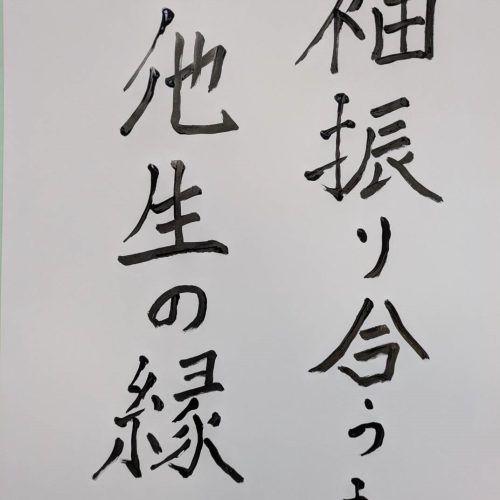 袖振り合うも
他生の縁